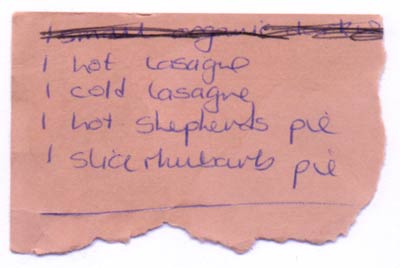 1 small organic
1 hot lasagne
1 cold lasagne
1 hot shepherds pie
1 slice rhubarb pie